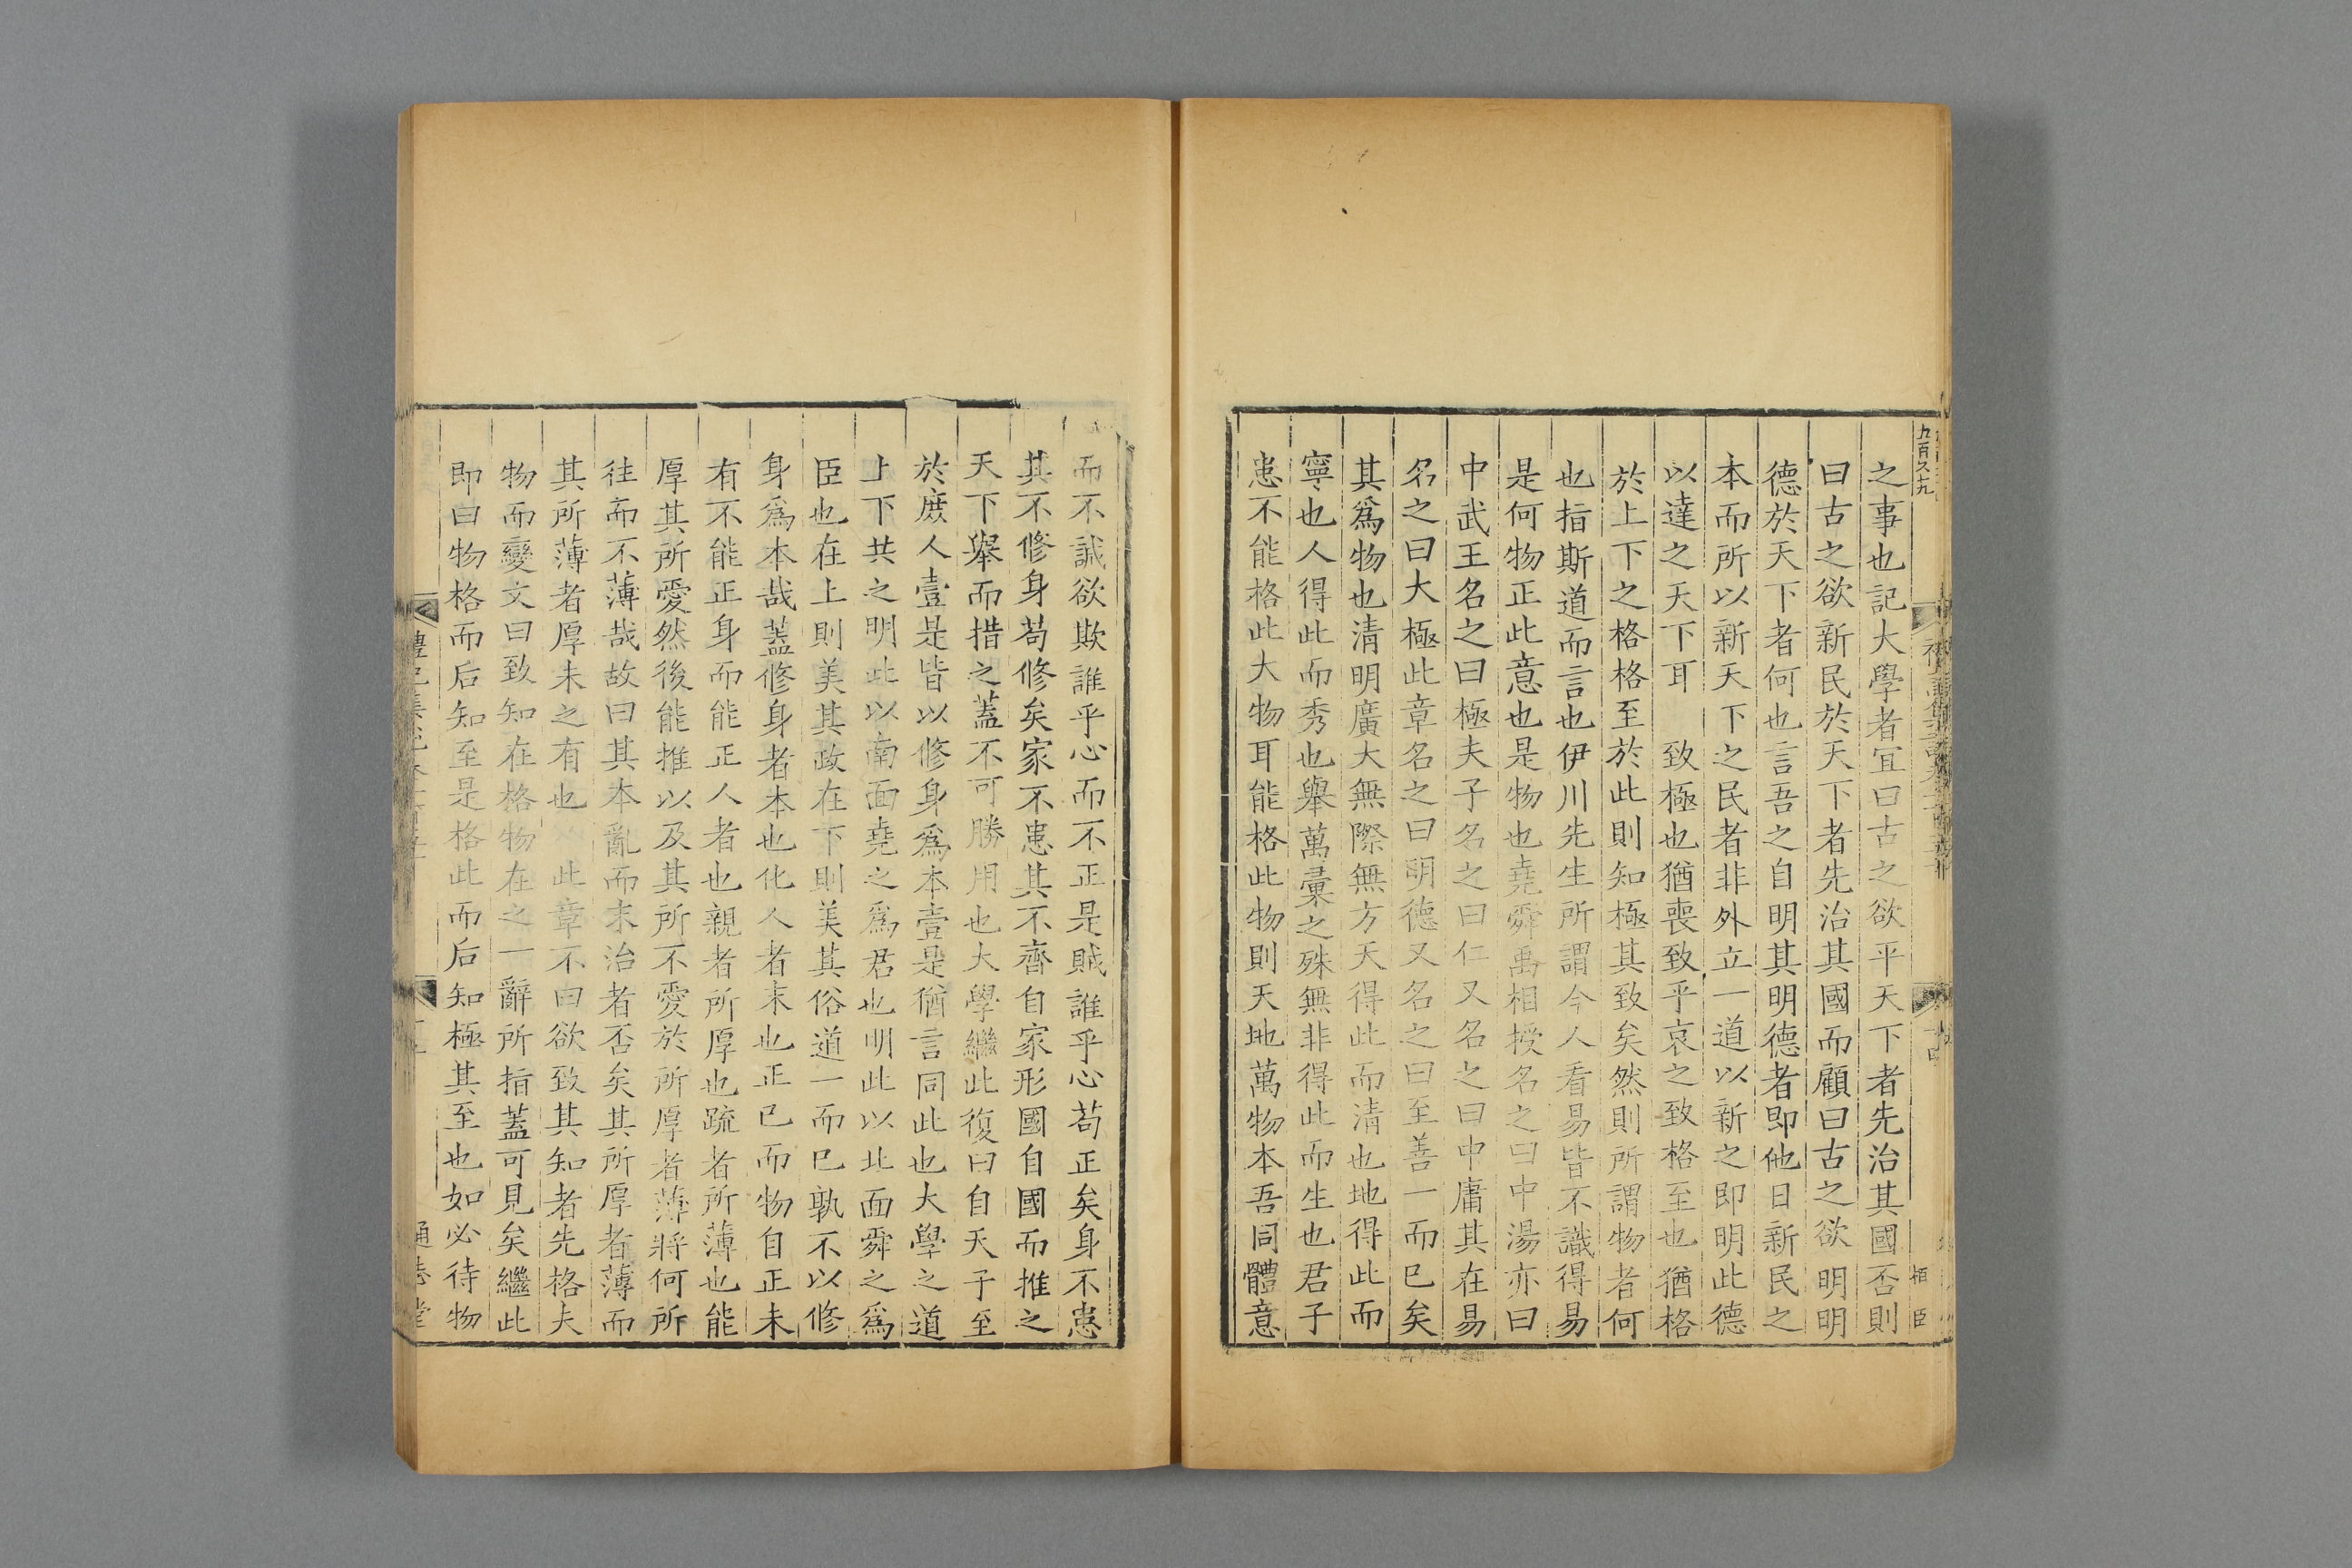 之事也記大學者宜曰古之欲平天下者先治其國否則
曰古之欲新民於天下者先治其國而顧曰古之欲明明
德於天下者何也言吾之自明其明德者即他日新民之
本而所以新天下之民者非外立一道以新之即明此德
以達之天下耳 致極也猶喪致乎哀之致格至也猶格
於上下之格格至於此則知極其致矣然則所謂物者何
也指斯道而言也伊川先生所謂今人看易皆不識得易
是何物正此意也是物也堯舜禹相授名之曰中湯亦曰
中武王名之曰極夫子名之曰仁又名之曰中庸其在易
名之曰大極此章名之曰明德又名之曰至善一而已矣
其爲物也清明廣大無際無方天得此而清也地得此而
寧也人得此而秀也舉萬彙之殊無非得此而生也君子
患不能格此大物耳能格此物則天地萬物本吾同體意
而不誠欲欺誰乎心而不正是賊誰乎心苟正矣身不患
其不修身苟修矣家不患其不齊自家形國自國而推之
天下舉而措之蓋不可勝用也大學繼此復曰自天子至
於庻人壹是皆以修身爲本壹是猶言同此也大學之道
上下共之明此以南面堯之爲君也明此以北面舜之爲
臣也在上則美其政在下則美其俗道一而已孰不以修
身爲本哉蓋修身者本也化人者末也正己而物自正未
有不能正身而能正人者也親者所厚也疏者所薄也能
厚其所愛然後能推以及其所不愛於所厚者薄將何所
往而不薄哉故曰其本亂而末治者否矣其所厚者薄而
其所薄者厚未之有也 此章不曰欲致其知者先格夫
物而變文曰致知在格物在之一辭所指蓋可見矣繼此
即曰物格而后知至是格此而后知極其至也如必待物
通志堂